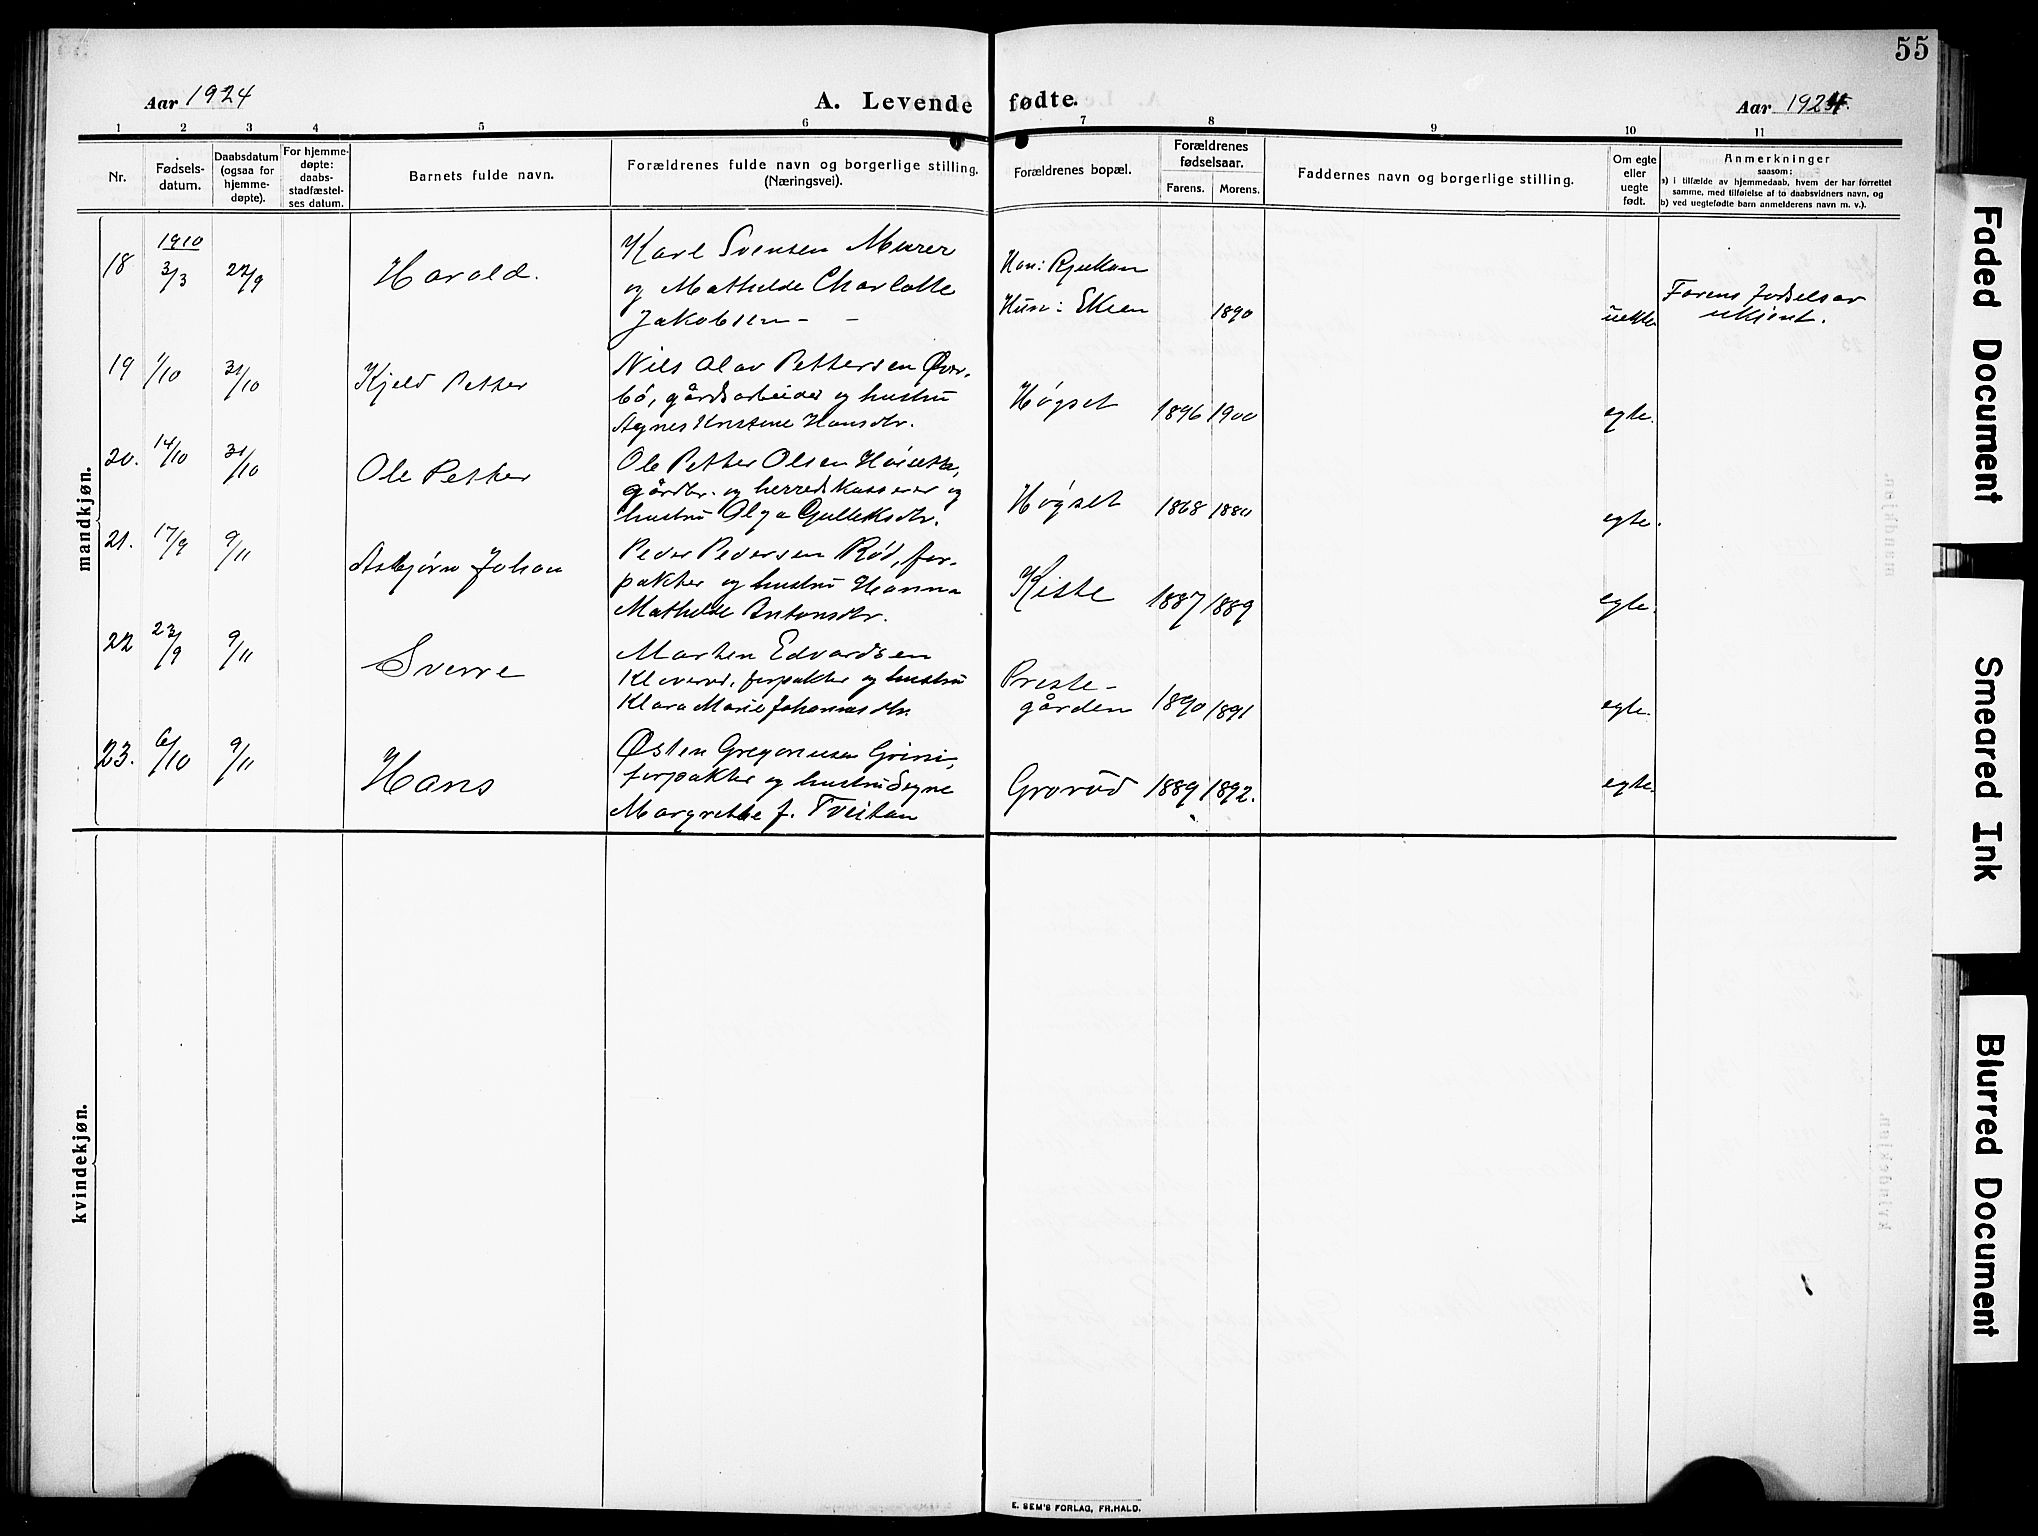 55
Aar 1924
A. Levende fødte.
Aar 1924.
1 2 3 4 5 6 7 8 9 10 11
Nr.
Fødsels-
datum.
Daabsdatum
(ogsaa for
hjemme-
døpte).
For hjemme-
døpte:
daabs-
stadfæstel-
ses datum.
Barnets fulde navn.
Forældrenes fulde navn og borgerlige stilling.
(Næringsvei).
Forældrenes bopæl.
Forældrenes
fødselsaar.
Farens. Morens.
Faddernes navn og borgerlige stilling.
Om egte
eller
uegte
født.
Anmerkninger
saasom:
a) i tilfælde av hjemmedaab, hvem der har forrettet
samme, med tilføielse af to daabsvidners navn, og
b) ved uegtefødte barn anmelderens navn m. v.).
mandkjøn.
18
1910
3/3
22/9
Harald.
Karl Svensen Murer
og Mathilde Charlotte
Jakobsen - -
Han: Rjukan
Hun: Ekeen
1890
uekte
Farens fødselsår
ukjent.
19
1/10
31/10
Kjeld Petter
Nils Olav Pettersen Øver-
bö, gårdsarbeider og hustru
Agnes Kristene Hansdtr.
Høgset
1896 1900
egte.
20.
14/10
31/10
Ole Petter
Ole Petter Olsen
gårdbr. og herredskasserer og
hustru Olga Gulleksdtr.
Høgset
1868 1880
egte.
21.
17/9
9/11
Asbjørn Johan
Peder Pedersen Rød, for-
pakter og hustru Hanna
Mathilde Antonsdtr.
Kiste
1887 1889
egte.
22
23/9
9/11
Sverre
Morten Edvardsen
Kleverød, forpakter og hustru
Klara Marie Johannesdtr.
Preste-
gården
1890 1891
egte.
23.
6/10
9/11
Hans
Østen Gregoriusen Grini,
forpakter og hustru Signe
Margrethe f. Tveitan
Grorød
1889 1892.
egte.
kvindekjøn.
E. SEM'S FORLAG, FR.HALD.
Faded Document
Smeared Ink
Blurred Document